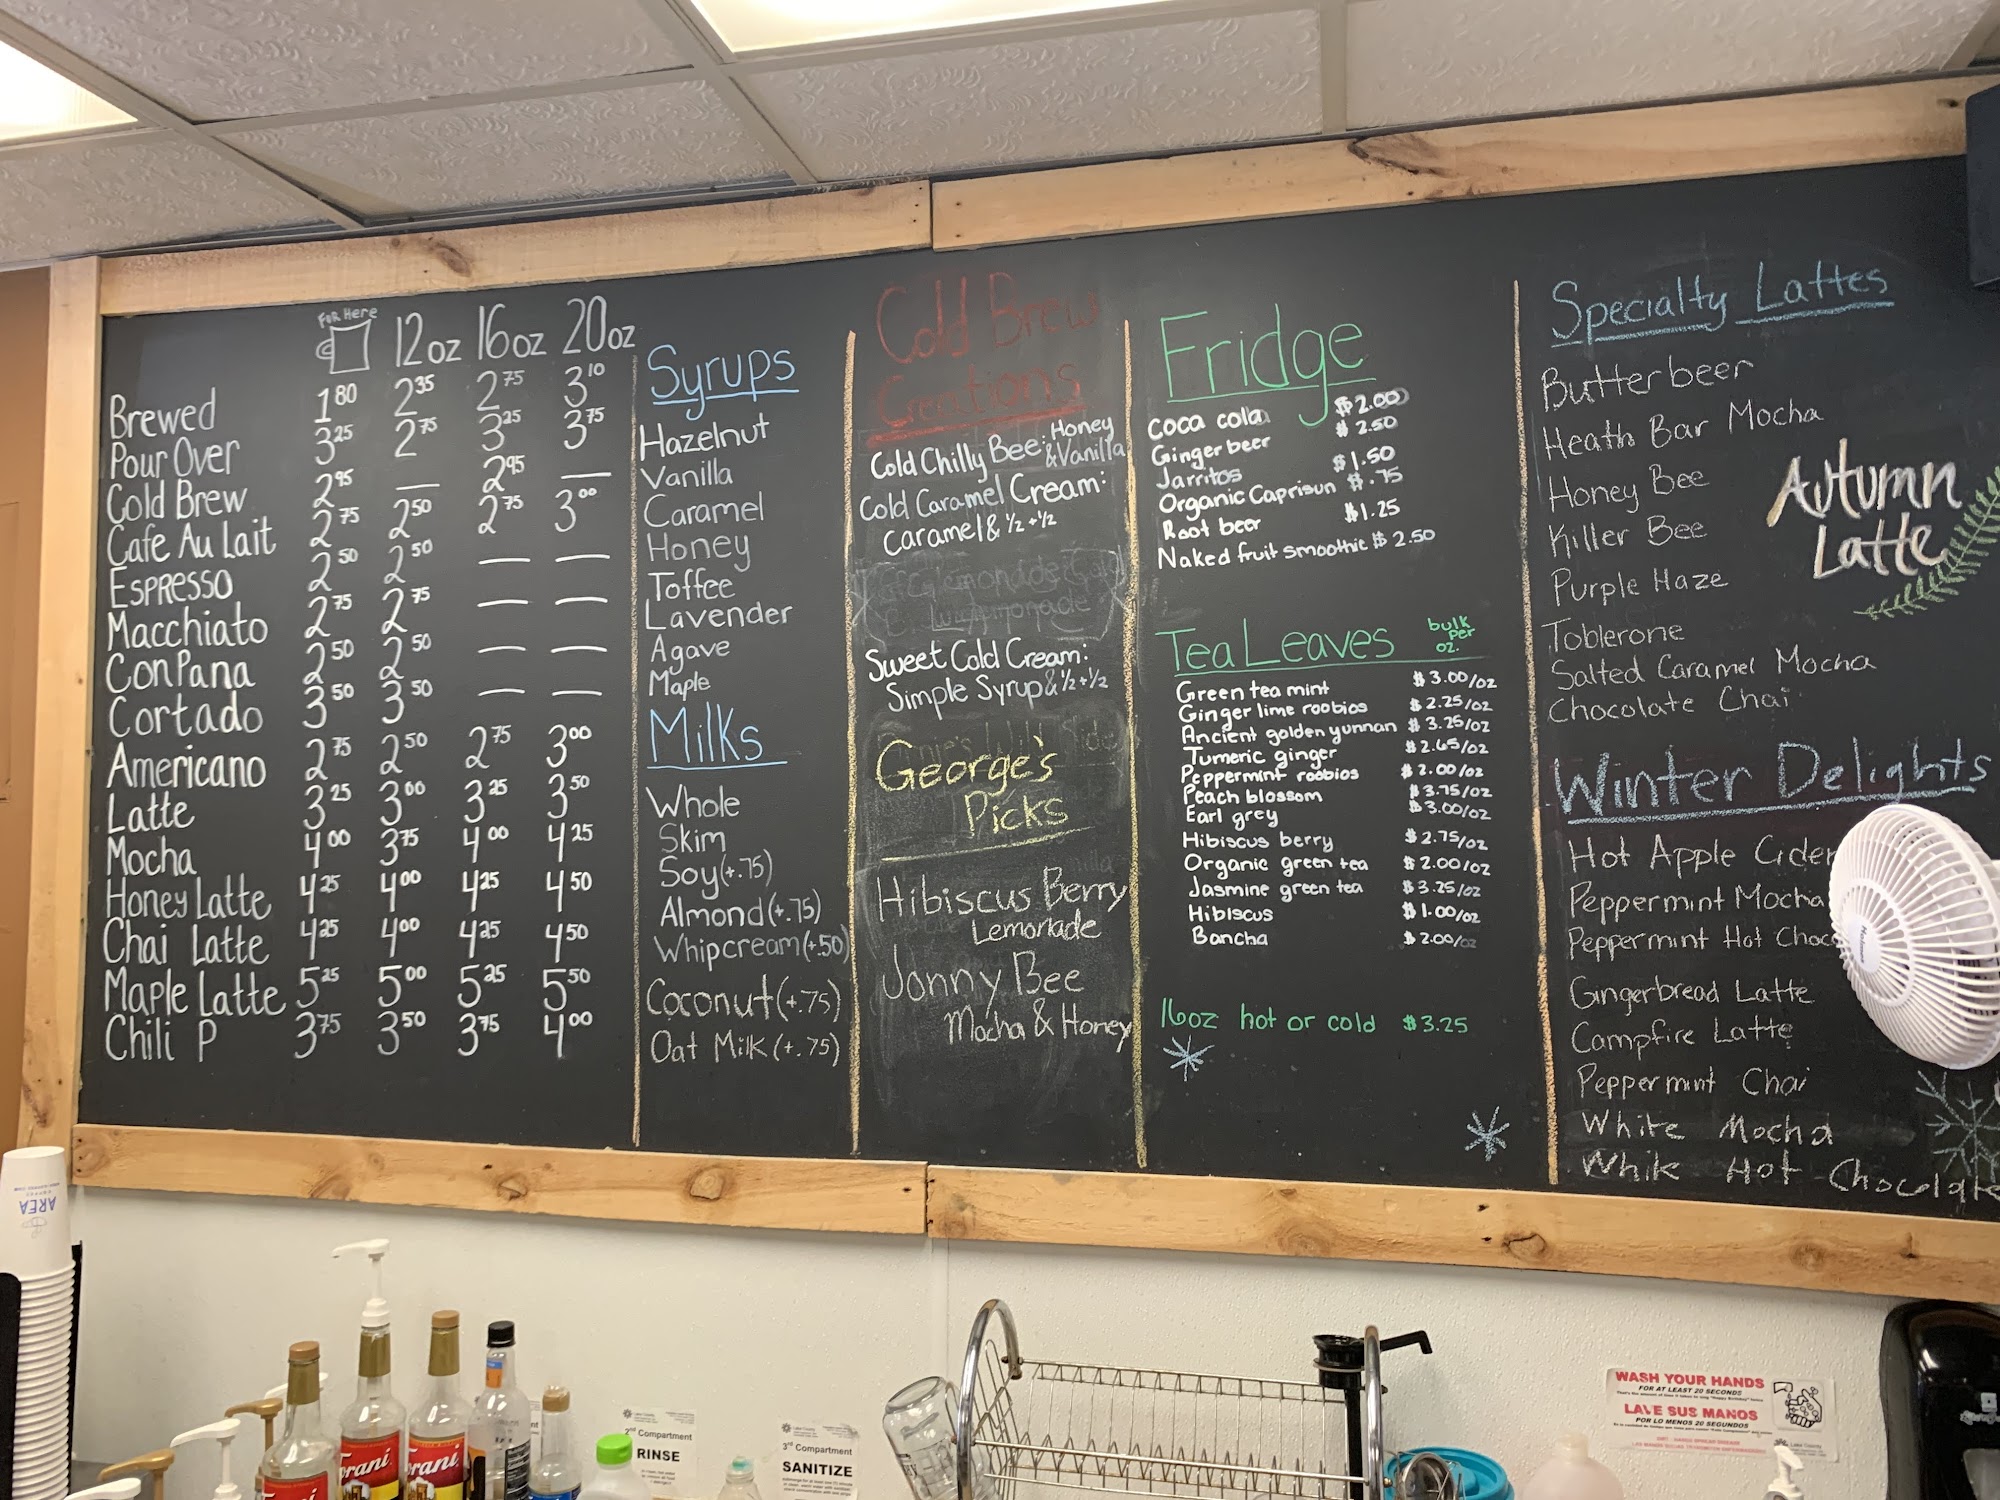 For Here 12oz 16oz 20oz
Brewed 1.80 2.35 2.75 3.10
Pour Over 3.25 2.75 3.25 3.75
Cold Brew 2.95 — 2.95 —
Cafe Au Lait 2.75 2.50 2.75 3.00
Espresso 2.50 2.50 — —
Macchiato 2.75 2.75 — —
ConPana 2.50 2.50 — —
Cortado 3.50 3.50 — —
Americano 2.75 2.50 2.75 3.00
Latte 3.25 3.00 3.25 3.50
Mocha 4.00 3.75 4.00 4.25
Honey Latte 4.25 4.00 4.25 4.50
Chai Latte 4.25 4.00 4.25 4.50
Maple Latte 5.25 5.00 5.25 5.50
Chili P 3.75 3.50 3.75 4.00
Syrups
Hazelnut
Vanilla
Caramel
Honey
Toffee
Lavender
Agave
Maple
Milks
Whole
Skim
Soy (+.75)
Almond (+.75)
Whipcream (+.50)
Coconut (+.75)
Oat Milk (+.75)
Cold Brew
Creations
Cold Chilly Bee: Honey
& Vanilla
Cold Caramel Cream:
Caramel & 1/2 + 1/2
Sweet Cold Cream:
Simple Syrup & 1/2 + 1/2
George's
Picks
Hibiscus Berry
Lemonade
Jonny Bee
Mocha & Honey
Fridge
Coca cola $2.00
Ginger beer $2.50
Jarritos $1.50
Organic Caprisun $.75
Root beer $1.25
Naked fruit smoothie $2.50
Tea Leaves bulk
per
oz.
Green tea mint $3.00/oz
Ginger lime roobios $2.25/oz
Ancient golden yunnan $3.25/oz
Tumeric ginger $2.65/oz
Peppermint roobios $2.00/oz
Peach blossom $3.75/oz
Earl grey $3.00/oz
Hibiscus berry $2.75/oz
Organic green tea $2.00/oz
Jasmine green tea $3.25/oz
Hibiscus $1.00/oz
Bancha $2.00/oz
16oz hot or cold $3.25
Specialty Lattes
Butterbeer
Heath Bar Mocha
Honey Bee
Killer Bee
Purple Haze
Toblerone
Salted Caramel Mocha
Chocolate Chai
Autumn
Latte
Winter Delights
Hot Apple Cider
Peppermint Mocha
Peppermint Hot Choco
Gingerbread Latte
Campfire Latte
Peppermint Chai
White Mocha
White Hot Chocolate
AREA
2nd Compartment
RINSE
3rd Compartment
SANITIZE
WASH YOUR HANDS
FOR AT LEAST 20 SECONDS
LAVE SUS MANOS
POR LO MENOS 20 SEGUNDOS
Torani